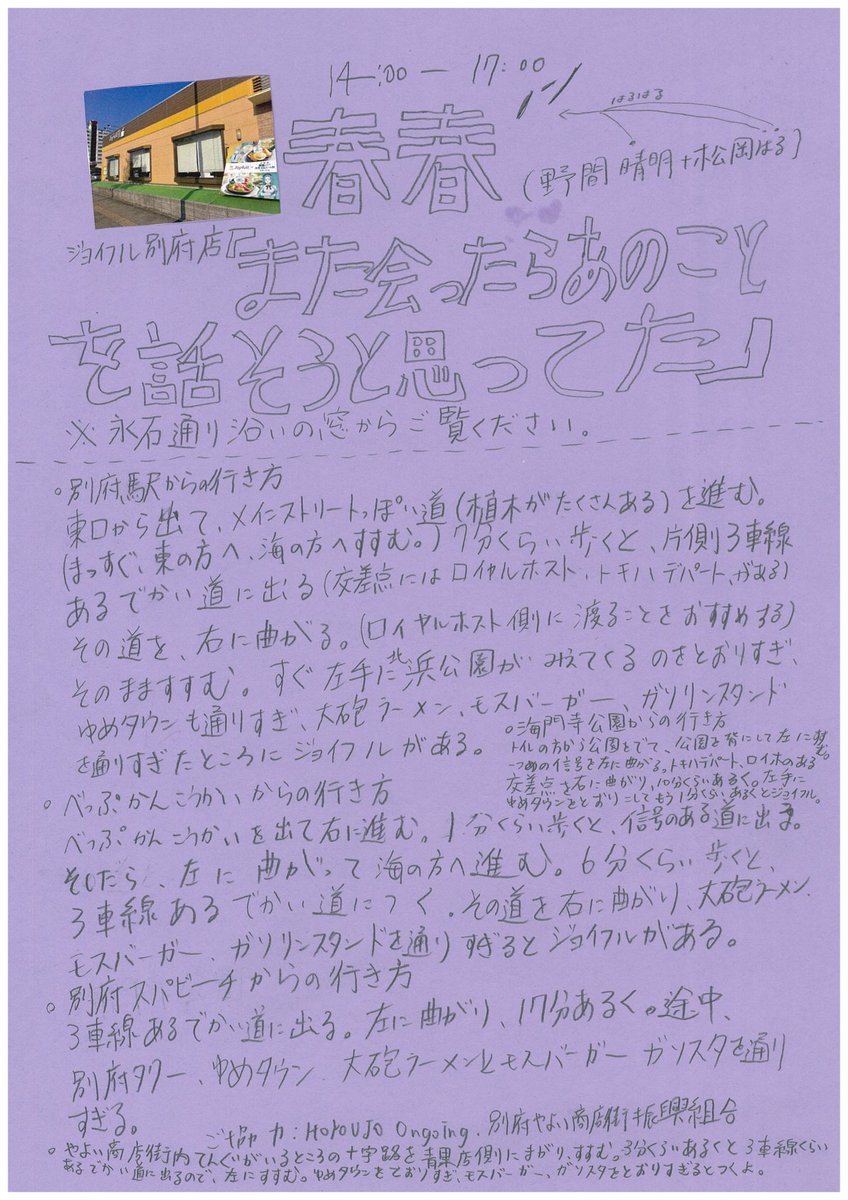 14:00 — 17:00
春春
はるはる
(野間晴明+松岡はる)
ジョイフル別府店「また会ったらあのこと
を話そうと思ってた」
※永石通り沿いの窓からご覧ください。
○別府駅からの行き方
東口から出て、メインストリートっぽい道(植木がたくさんある)を進む。
(まっすぐ、東の方へ、海の方へすすむ。)7分くらい歩くと、片側3車線
あるでかい道に出る(交差点にはロイヤルホスト、トキハデパート、がある)
その道を、右に曲がる。(ロイヤルホスト側に渡ることをおすすめする)
そのまますすむ。すぐ左手に北浜公園がみえてくるのをとおりすぎ、
ゆめタウンも通りすぎ、大砲ラーメン、モスバーガー、ガソリンスタンド
を通りすぎたところにジョイフルがある。
○海門寺公園からの行き方
トイレの方から公園をでて、公園を背にして左にすすむ。
一つめの信号を左に曲がる。トキハデパート、ロイホのある
交差点を右に曲がり、10分くらいあるく。左手に
ゆめタウンをとおりこしてもう1分くらいあるくとジョイフル。
○べっぷかんこうかいからの行き方
べっぷかんこうかいを出て右に進む。1分くらい歩くと、信号のある道に出る。
そしたら、左に曲がって海の方へ進む。6分くらい歩くと、
3車線あるでかい道につく。その道を右に曲がり、大砲ラーメン、
モスバーガー、ガソリンスタンドを通りすぎるとジョイフルがある。
○別府スパビーチからの行き方
3車線あるでかい道に出る。左に曲がり、17分あるく。途中、
別府タワー、ゆめタウン、大砲ラーメンとモスバーガー ガソスタを通り
すぎる。
ご協力:HOTOUJO Ongoing、別府やよい商店街振興組合
○やよい商店街内てんぐがいるところの十字路を青果店側にまがり、すすむ。3分くらいあるくと3車線くらい
あるでかい道に出るので、左にすすむ。ゆめタウンをとおりすぎ、モスバーガー、ガソスタをとおりすぎるとつくよ。